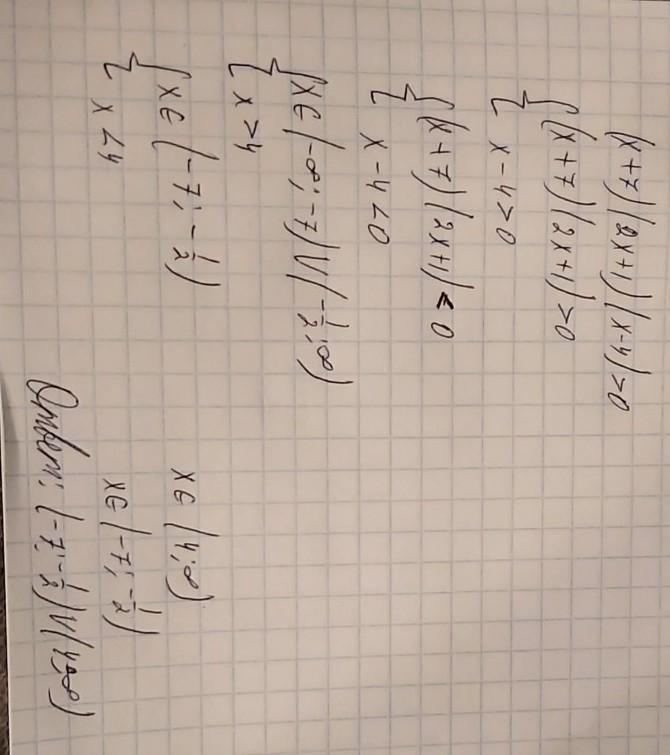 (x+7)(2x+1)(x-4)>0
{(x+7)(2x+1)>0
x-4>0
{(x+7)(2x+1)<0
x-4<0
{x∈(-∞;-7)V(-1/2;∞)
x>4
{x∈(-7;-1/2)
x<4
x∈(4;∞)
x∈(-7;-1/2)
Ответ: (-7;-1/2)V(4;∞)